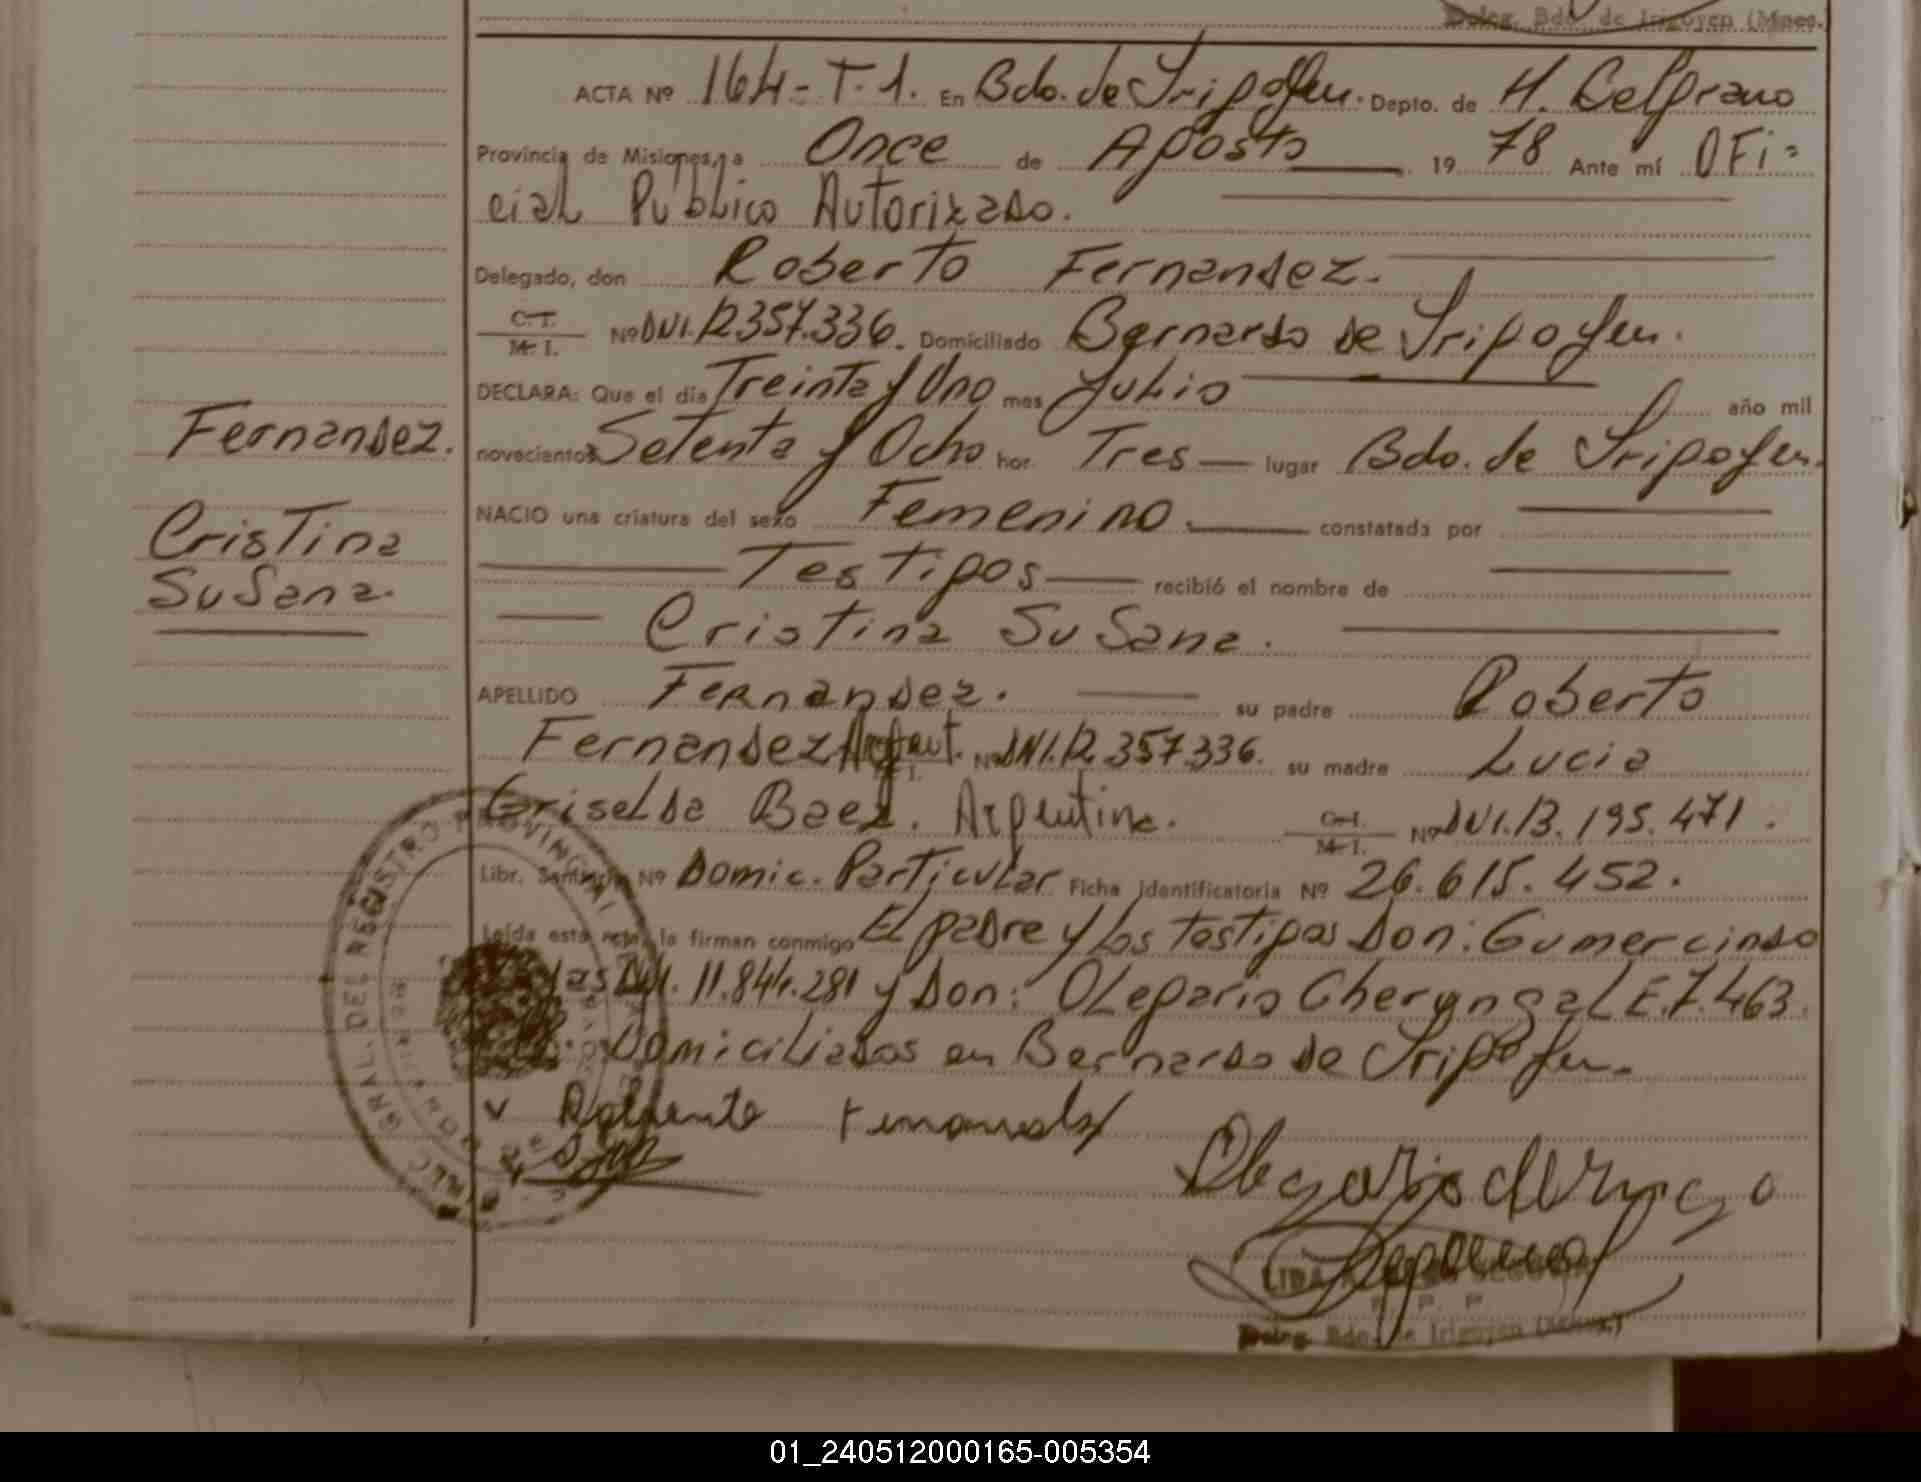 Deleg. Bdo. de Irigoyen (Mnes.
ACTA Nº 164-T-1. En Bdo. de Irigoyen. Depto. de H. Belgrano
Provincia de Misiones, a Once de Agosto 19 78 Ante mí OFi-
cial Publico Autorizado.
Delegado, don Roberto Fernandez.
C. I. M. I. Nº DNI. 12.357.336. Domiciliado Bernardo de Irigoyen.
DECLARA: Que el día Treinta y Uno mes Julio año mil
novecientos Setenta y Ocho hor. Tres lugar Bdo. de Irigoyen.
NACIO una criatura del sexo Femenino. constatada por
Testigos recibió el nombre de
Cristina Susana.
APELLIDO Fernandez. su padre Roberto
Fernandez Argent. Nº DNI. 12.357.336. su madre Lucia
Griselda Baez. Argentina. C. I. M. I. Nº DNI. 13.195.471.
Libr. Sanitaria Nº Domic. Particular Ficha Identificatoria Nº 26.615.452.
Leída esta acta, la firman conmigo El padre y los testigos Don: Gumercindo
DNI. 11.844.281 y Don: Olegario L.E. 7.463.
Domiciliados en Bernardo de Irigoyen.
Fernandez.
Cristina
Susana.
REGISTRO PROVINCIAL
Deleg. Bdo. de Irigoyen (Mnes.)
01_240512000165-005354